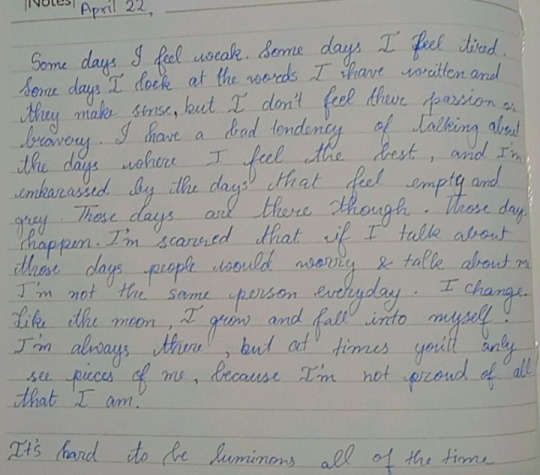 Notes
April 22,
Some days I feel weak. Some days I feel tired.
Some days I look at the words I have written and
they make sense, but I don't feel their passion or
bravery. I have a bad tendency of talking about
the days where I feel the best, and I'm
embarassed by the days that feel empty and
grey. Those days are there though. Those day
happen. I'm scarred that if I talk about
those days people would worry & talk about m
I'm not the same person everyday. I change.
Like the moon, I grow and fall into myself.
I'm always there, but at times you'll only
see pieces of me, because I'm not proud of all
that I am.
It's hard to be luminous all of the time